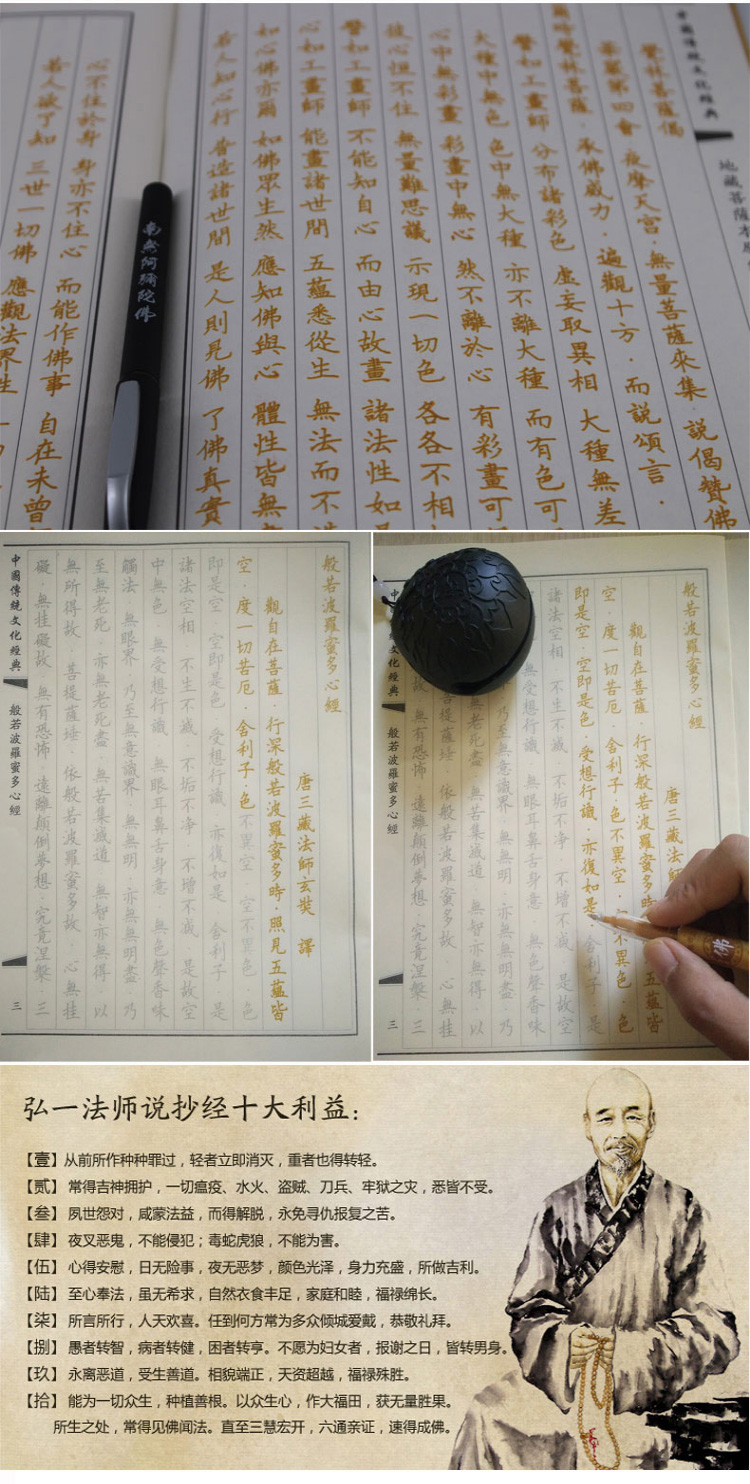 中國傳統文化經典
地藏菩薩本
覺林菩薩偈
華嚴第四會 夜摩天宮·無量菩薩來集 說偈贊佛
爾時覺林菩薩·承佛威力·遍觀十方·而說頌言·
譬如工畫師 分布諸彩色 虛妄取異相 大種無差
大種中無色 色中無大種 亦不離大種 而有色可
心中無彩畫 彩畫中無心 然不離於心 有彩畫可
彼心恒不住 無量難思議 示現一切色 各各不相
譬如工畫師 不能知自心 而由心故畫 諸法性如是
心如工畫師 能畫諸世間 五蘊悉從生 無法而不造
如心佛亦爾 如佛眾生然 應知佛與心 體性皆無
若人知心行 普造諸世間 是人則見佛 了佛真實
南無阿彌陀佛
心不住於身 身亦不住心 而能作佛事 自在未曾
若人欲了知 三世一切佛 應觀法界性
般若波羅蜜多心經
唐三藏法師玄奘 譯
觀自在菩薩·行深般若波羅蜜多時·照見五蘊皆
空·度一切苦厄·舍利子·色不異空·空不異色·色
即是空·空即是色·受想行識·亦復如是·舍利子·是
諸法空相·不生不滅·不垢不净·不增不減·是故空
中無色·無受想行識·無眼耳鼻舌身意·無色聲香味
觸法·無眼界·乃至無意識界·無無明·亦無無明盡·乃
至無老死·亦無老死盡·無苦集滅道·無智亦無得·以
無所得故·菩提薩埵·依般若波羅蜜多故·心無挂
礙·無挂礙故·無有恐怖·遠離顛倒夢想·究竟涅槃·三
中國傳統文化經典
般若波羅蜜多心經
三
般若波羅蜜多心經
唐三藏法師
觀自在菩薩·行深般若波羅蜜多時 五蘊皆
空·度一切苦厄·舍利子·色不異空· 不異色·色
即是空·空即是色·受想行識·亦復如是·舍利子·是
諸法空相·不生不滅·不垢不净·不增不減·是故空
無受想行識·無眼耳鼻舌身意·無色聲香味
乃至無意識界·無無明·亦無無明盡·乃
無老死盡·無苦集滅道·無智亦無得·以
菩提薩埵·依般若波羅蜜多故·心無挂
故·無有恐怖·遠離顛倒夢想·究竟涅槃·三
傳統文化經典
般若波羅蜜多心經
三
佛
弘一法师说抄经十大利益：
【壹】从前所作种种罪过，轻者立即消灭，重者也得转轻。
【贰】常得吉神拥护，一切瘟疫、水火、盗贼、刀兵、牢狱之灾，悉皆不受。
【叁】夙世怨对，咸蒙法益，而得解脱，永免寻仇报复之苦。
【肆】夜叉恶鬼，不能侵犯；毒蛇虎狼，不能为害。
【伍】心得安慰，日无险事，夜无恶梦，颜色光泽，身力充盛，所做吉利。
【陆】至心奉法，虽无希求，自然衣食丰足，家庭和睦，福禄绵长。
【柒】所言所行，人天欢喜。任到何方常为多众倾城爱戴，恭敬礼拜。
【捌】愚者转智，病者转健，困者转亨。不愿为妇女者，报谢之日，皆转男身。
【玖】永离恶道，受生善道。相貌端正，天资超越，福禄殊胜。
【拾】能为一切众生，种植善根。以众生心，作大福田，获无量胜果。
所生之处，常得见佛闻法。直至三慧宏开，六通亲证，速得成佛。